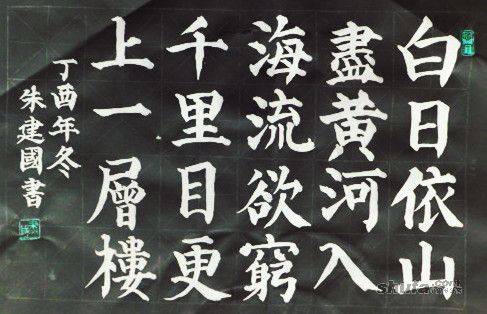 白日依山
盡黄河入
海流欲窮
千里目更
上一層樓
丁酉年冬
朱建國書